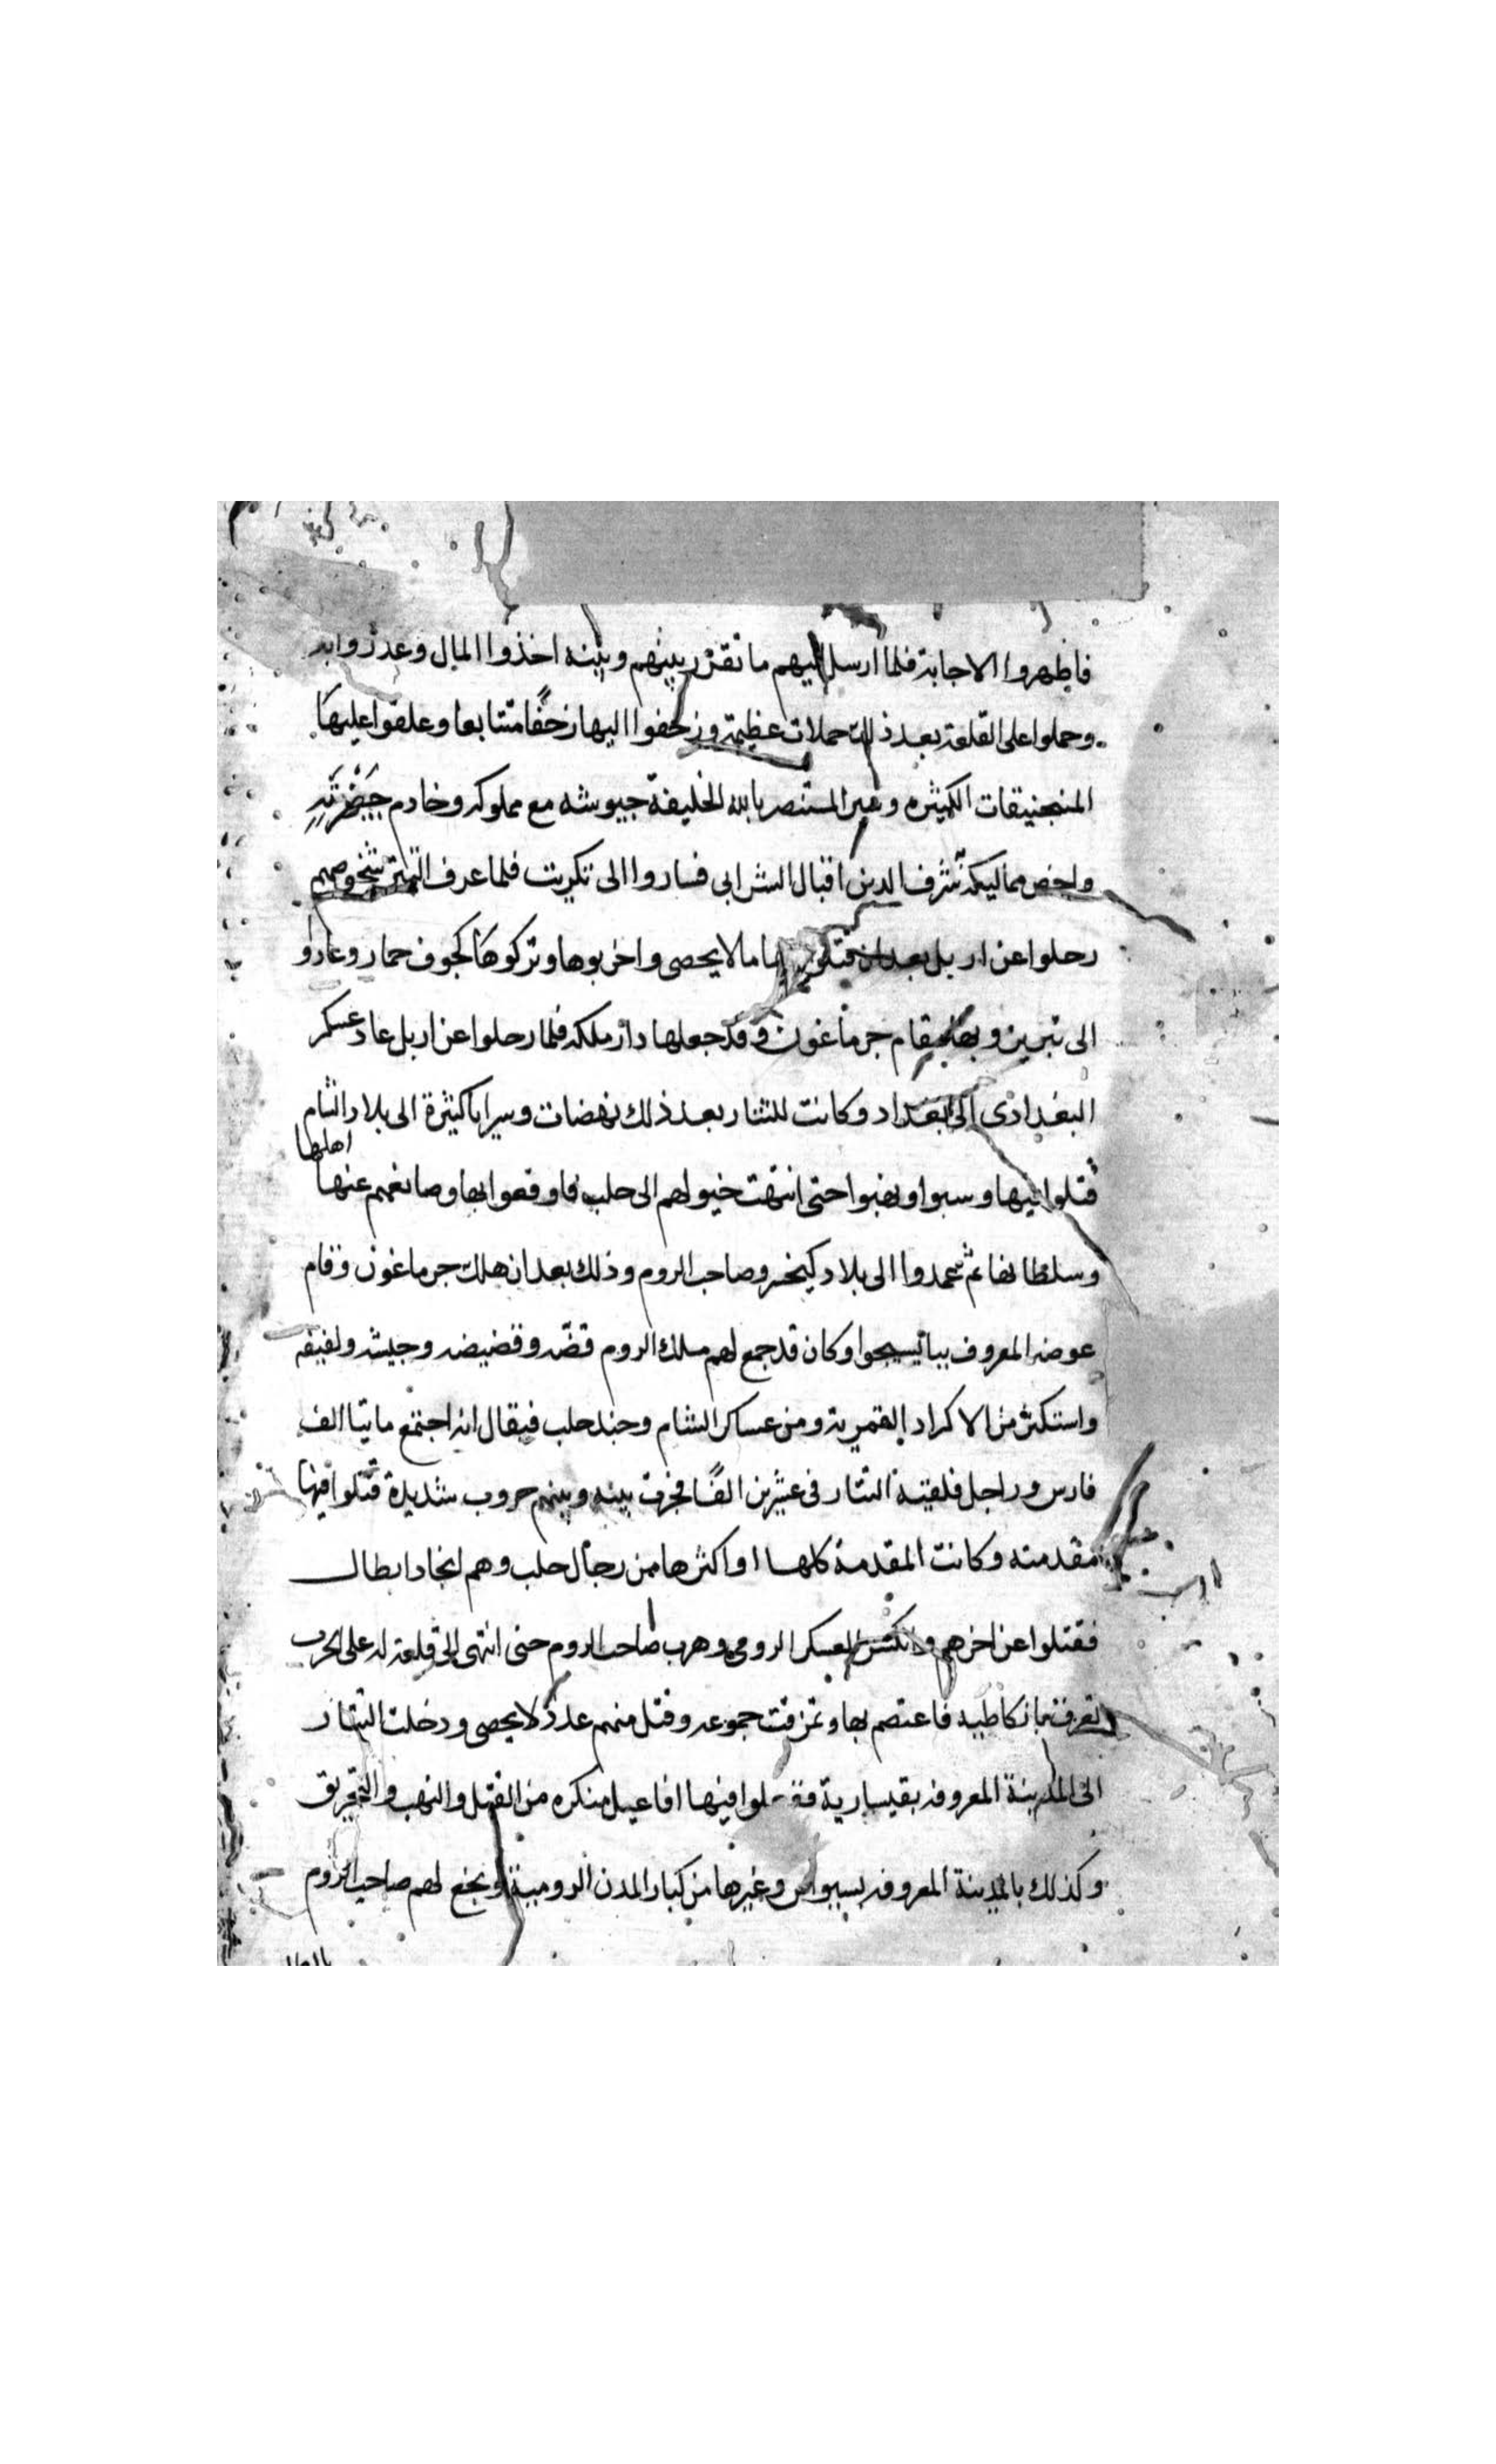 فاظهروا الاجابة فلما ارسل اليهم ما تقرر بينهم وبينه اخذوا المال وغدروا به
وحملوا على القلعة بعد ذلك حملات عظيمة وزحفوا اليها زحفًا متتابعا وعلقوا عليها
المنجنيقات الكثيره وسير المستنصر بالله الخليفة جيوشه مع مملوكه وخادم حَضْرَتِهِ
واخص مماليكه شرف الدين اقبال الشرابى فساروا الى تكريت فلما عرف التتر شخوصهم
رحلوا عن اربل بعد ان قتلوا منها ما لا يحصى واخربوها وتركوها كجوف حمار وعادوا
الى تبريز وبها مقام جرماغون وقد جعلها دار ملكه فلما رحلوا عن اربل عاد عسكر
البغدادى الى بغداد وكانت للتتار بعد ذلك نهضات وسرايا كثيرة الى بلاد الشام
قتلوا فيها وسبوا ونهبوا حتى انتهت خيولهم الى حلب فاوقعوا بها وصانعهم عنها اهلها
وسلطانها ثم عمدوا الى بلاد كيخسرو صاحب الروم وذلك بعد ان هلك جرماغون وقام
عوضه المعروف ببا تيسيجوا وكان قد جمع لهم ملك الروم قضّه وقضيضه وجيشه ولفيفه
واستكثر من الاكراد القيمرية ومن عساكر الشام وجند حلب فيقال انه اجتمع مايتا الف
فارس وراجل فلقيته التتار فى عشرين الفًا فجرت بينه وبينهم حروب شديدة قتلوا فيها
مقدمته وكانت المقدمة كلها او اكثرها من رجال حلب وهم انجاد ابطال
فقتلوا عن اخرهم وانكسر العسكر الرومى وهرب صاحب الروم حتى انتهى الى قلعة له على البحر
تعرف بانطاكيه فاعتصم بها وتمزقت جموعه وقتل منهم عدد لا يحصى ودخلت التتار
الى المدينة المعروفه بقيسارية ففعلوا فيها افاعيل منكره من القتل والنهب والتحريق
وكذلك بالمدينة المعروفه بسيواس وغيرها من كبار المدن الرومية وبخع لهم صاحب الروم